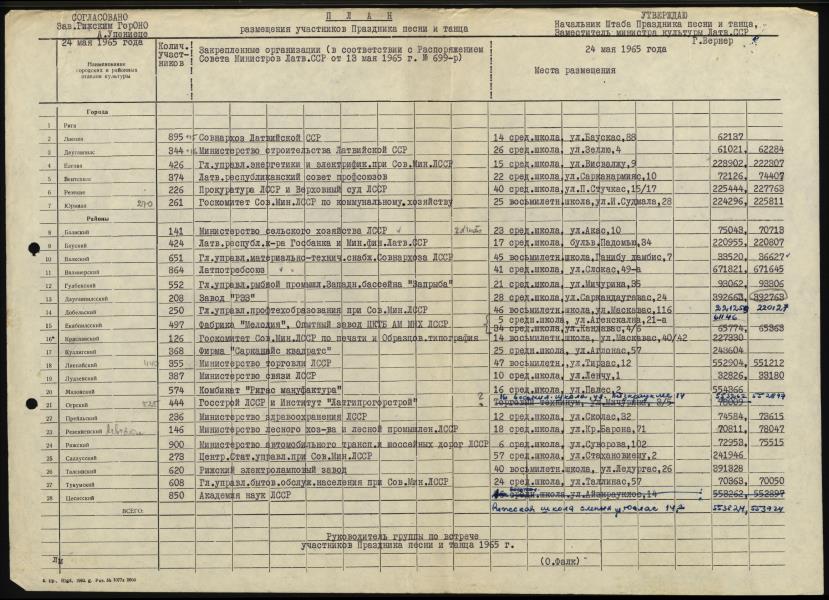 СОГЛАСОВАНО
Зав.Рижским ГорОНО
А.Упениеце
24 мая 1965 года
П Л А Н
размещения участников Праздника песни и танца
УТВЕРЖДАЮ
Начальник Штаба Праздника песни и танца,
Заместитель министра культуры Латв.ССР
Г.Вернер
24 мая 1965 года
Наименование городских и районных отделов культуры
Колич. участ- ников
Закрепленные организации (в соответствии с Распоряжением Совета Министров Латв.ССР от 13 мая 1965 г. № 699-р)
Места размещения
Города
1 Рига
2 Лиепая 895 +15 Совнархоз Латвийской ССР 14 сред.школа, ул.Баускас,88 62137
3 Даугавпилс 344 Министерство строительства Латвийской ССР 26 сред.школа, ул.Зеллю,4 61021, 62284
4 Елгава 426 Гл.управл.энергетики и электрифик.при Сов.Мин.ЛССР 15 сред.школа, ул.Висвалжу,9 228902, 222307
5 Вентспилс 374 Латв.республиканский совет профсоюзов 22 сред.школа, ул.Сарканармияс,10 72126, 74407
6 Резекне 226 Прокуратура ЛССР и Верховный суд ЛССР 40 сред.школа, ул.П.Стучкас,15/17 225444, 227763
7 Юрмала 270 261 Госкомитет Сов.Мин.ЛССР по коммунальному хозяйству 25 восьмилетн.школа,ул.И.Судмала,28 224296, 225811
Районы
8 Балвский 141 Министерство сельского хозяйства ЛССР 23 сред.школа, ул.Акас,10 75048, 70713
9 Бауский 424 Латв.республ.к-ра Госбанка и Мин.фин.Латв.ССР 17 сред.школа, бульв.Падомью,34 220955, 220807
10 Валкский 651 Гл.управл.материально-технич.снабж.Совнархоза ЛССР 45 восьмилетн.школа,Ганибу дамбис,7 33520, 36627
11 Валмиерский 864 Латпотребсоюз 41 сред.школа, ул.Слокас,49-а 671821, 671645
12 Гулбенский 552 Гл.управл.рыбной промышл.Западн.бассейна "Запрыба" 21 сред.школа, ул.Мичурина,35 93062, 93306
13 Даугавпилсский 208 Завод "РЭЗ" 28 сред.школа, ул.Саркандаугавас,24 392663, 392763
14 Добельский 250 Гл.управл.профтехобразования при Сов.Мин.ЛССР 46 восьмилетн.школа,ул.Маскавас,116
15 Екабпилсский 497 Фабрика "Мелодия", Опытный завод ПКТБ АМ ММХ ЛССР 5 сред.школа, ул.Агенскална,21-а
34 сред.школа, ул.Кандавас,4/6 65774, 65363
16 Краславский 126 Госкомитет Сов.Мин.ЛССР по печати и Образцов.типография 14 восьмилетн.школа, ул.Маскавас,40/42 227330
17 Кулдигский 368 Фирма "Сарканайс квадратс" 25 сред.школа, ул.Аглонас,57 243604
18 Лиепайский 355 Министерство торговли ЛССР 47 восьмилетн.школа, ул.Тирзас,12 552900, 551212
19 Лудзенский 387 Министерство связи ЛССР 10 сред.школа, ул.Ленчу,1 32826, 33180
20 Мадонский 574 Комбинат "Ригас мануфактура" 16 сред.школа, ул.Палес,2 554366
21 Огрский 444 Госстрой ЛССР и Институт "Латгипрогорстрой"
22 Прейльский 236 Министерство здравоохранения ЛССР 12 сред.школа, ул.Сколас,32 74584, 73615
23 Резекненский 146 Министерство лесного хоз-ва и лесной промышлен.ЛССР 18 сред.школа, ул.Кр.Барона,71 70811, 78047
24 Рижский 900 Министерство автомобильного трансп.и шоссейных дорог ЛССР 6 сред.школа, ул.Суворова,102 72953, 75515
25 Салдусский 273 Центр.Стат.управл.при Сов.Мин.ЛССР 57 сред.школа, ул.Стахановиешу,2 241946
26 Талсинский 620 Рижский электроламповый завод 40 восьмилетн.школа, ул.Ледургас,26 391328
27 Тукумский 608 Гл.управл.бытов.обслуж.населения при Сов.Мин.ЛССР 24 сред.школа, ул.Таллинас,57 70363, 70050
28 Цесисский 850 Академия наук ЛССР сред.школа,ул.Айзкрауклес,14 553262, 552897
ВСЕГО: Рижская школа слепых, ул.Юглас 14
Руководитель группы по встрече
участников Праздника песни и танца 1965 г.
(О.Фалк)
Лм